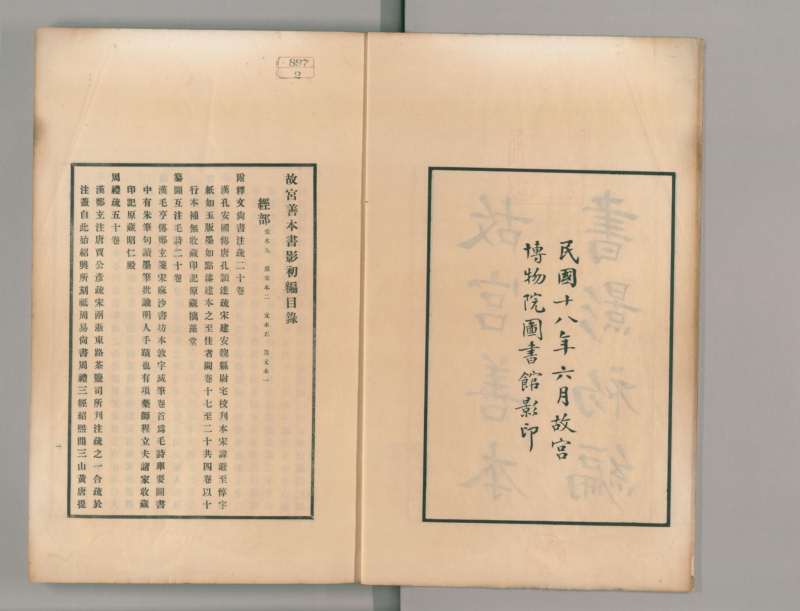 民國十八年六月故宮
博物院圖書館影印
897
2
故宮善本書影初編目錄
經部
附釋文尙書注疏二十卷
漢孔安國傳唐孔穎達疏宋建安魏縣尉宅校刋本宋諱嚴至惇字
紙如玉版墨如點漆建本之至佳者闕卷十七至二十共四卷以十
行本補無收藏印記原藏摛藻堂
纂圖互注毛詩二十卷
漢毛亨傳鄭玄箋宋麻沙書坊本敦字或筆卷首爲毛詩舉要圖書
中有朱筆句讀墨筆批識明人手蹟也有項藥師程立夫諸家收藏
印記原藏昭仁殿
周禮疏五十卷
漢鄭玄注唐賈公彥疏宋兩浙東路茶鹽司所刋注疏之一合疏於
注蓋自此始紹興所刻祗周易尙書周禮三經紹熙間三山黃唐提